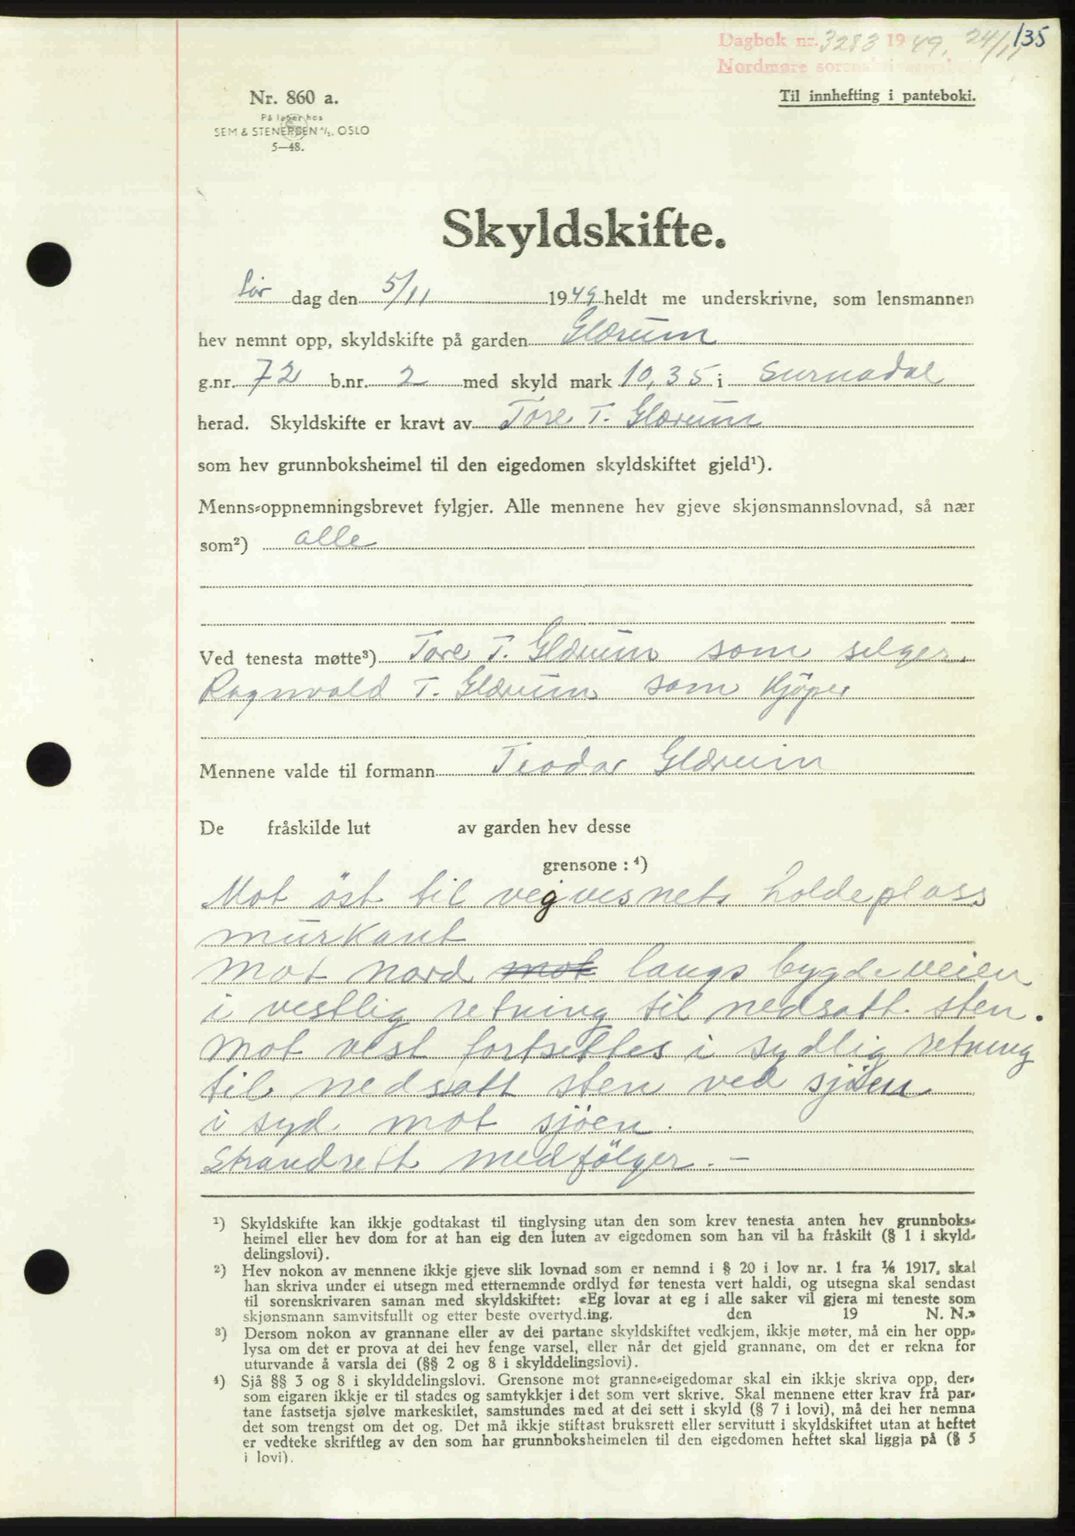 Dagbok nr. 3283 1949, 24/11 135
Nordmøre sorenskriverembete
Nr. 860 a. Til innhefting i panteboki.
På lager hos
SEM & STENERSEN A/S, OSLO
5—48.
Skyldskifte.
Lør dag den 5/11 1949 heldt me underskrivne, som lensmannen
hev nemnt opp, skyldskifte på garden Glærum
g.nr. 72 b.nr. 2 med skyld mark 10,35 i Surnadal
herad. Skyldskifte er kravt av Tore T. Glærum
som hev grunnboksheimel til den eigedomen skyldskiftet gjeld¹).
Menns-oppnemningsbrevet fylgjer. Alle mennene hev gjeve skjønsmannslovnad, så nær
som²) alle
Ved tenesta møtte³) Tore T. Glærum som selger.
Ragnvald T. Glærum som Kjöper
Mennene valde til formann Teodor Glærum
De fråskilde lut av garden hev desse
grensone : ⁴)
Mot öst til vegvesnets holdeplass
murkant
mot nord mot langs bygdeveien
i vestlig retning til nedsatt sten.
Mot vest fortsettes i sydlig retning
til nedsatt sten ved sjöen
i syd mot sjöen.
Strandrett medfölger. —
¹) Skyldskifte kan ikkje godtakast til tinglysing utan den som krev tenesta anten hev grunnboks-
heimel eller hev dom for at han eig den luten av eigedomen som han vil ha fråskilt (§ 1 i skyld-
delingslovi).
²) Hev nokon av mennene ikkje gjeve slik lovnad som er nemnd i § 20 i lov nr. 1 fra 1/6 1917, skal
han skriva under ei utsegn med etternemnde ordlyd før tenesta vert haldi, og utsegna skal sendast
til sorenskrivaren saman med skyldskiftet: «Eg lovar at eg i alle saker vil gjera mi teneste som
skjønsmann samvitsfullt og etter beste overtyding. den 19 N. N.»
³) Dersom nokon av grannane eller av dei partane skyldskiftet vedkjem, ikkje møter, må ein her opp-
lysa om det er prova at dei hev fenge varsel, eller når det gjeld grannane, om det er rekna for
uturvande å varsla dei (§§ 2 og 8 i skylddelingslovi).
⁴) Sjå §§ 3 og 8 i skylddelingslovi. Grensone mot granne-eigedomar skal ein ikkje skriva opp, der-
som eigaren ikkje er til stades og samtykkjer i det som vert skrive. Skal mennene etter krav frå par-
tane fastsetja sjølve markeskilet, samstundes med at dei sett i skyld (§ 7 i lovi), må dei her nemna
det som trengst om det og. Det må ikkje stiftast bruksrett eller servitutt i skyldskiftet utan at heftet
er vedteke skriftleg av den som har grunnboksheimelen til den eigedomen heftet skal liggja på (§ 5
i lovi).